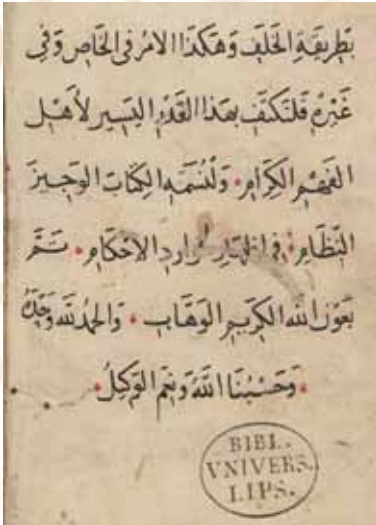 بطريقة الخلف وهكذا الامر فى الخاص وفى
غيره فلنكتف بهذا القدر اليسير لأهل
الفهم الكرام ولنسمه الكتاب الوجيز
النظام فى اظهار موارد الاحكام تم
بعون الله الكريم الوهاب والحمد لله وحده
وحسبنا الله ونعم الوكيل
BIBL.
VNIVERS.
LIPS.